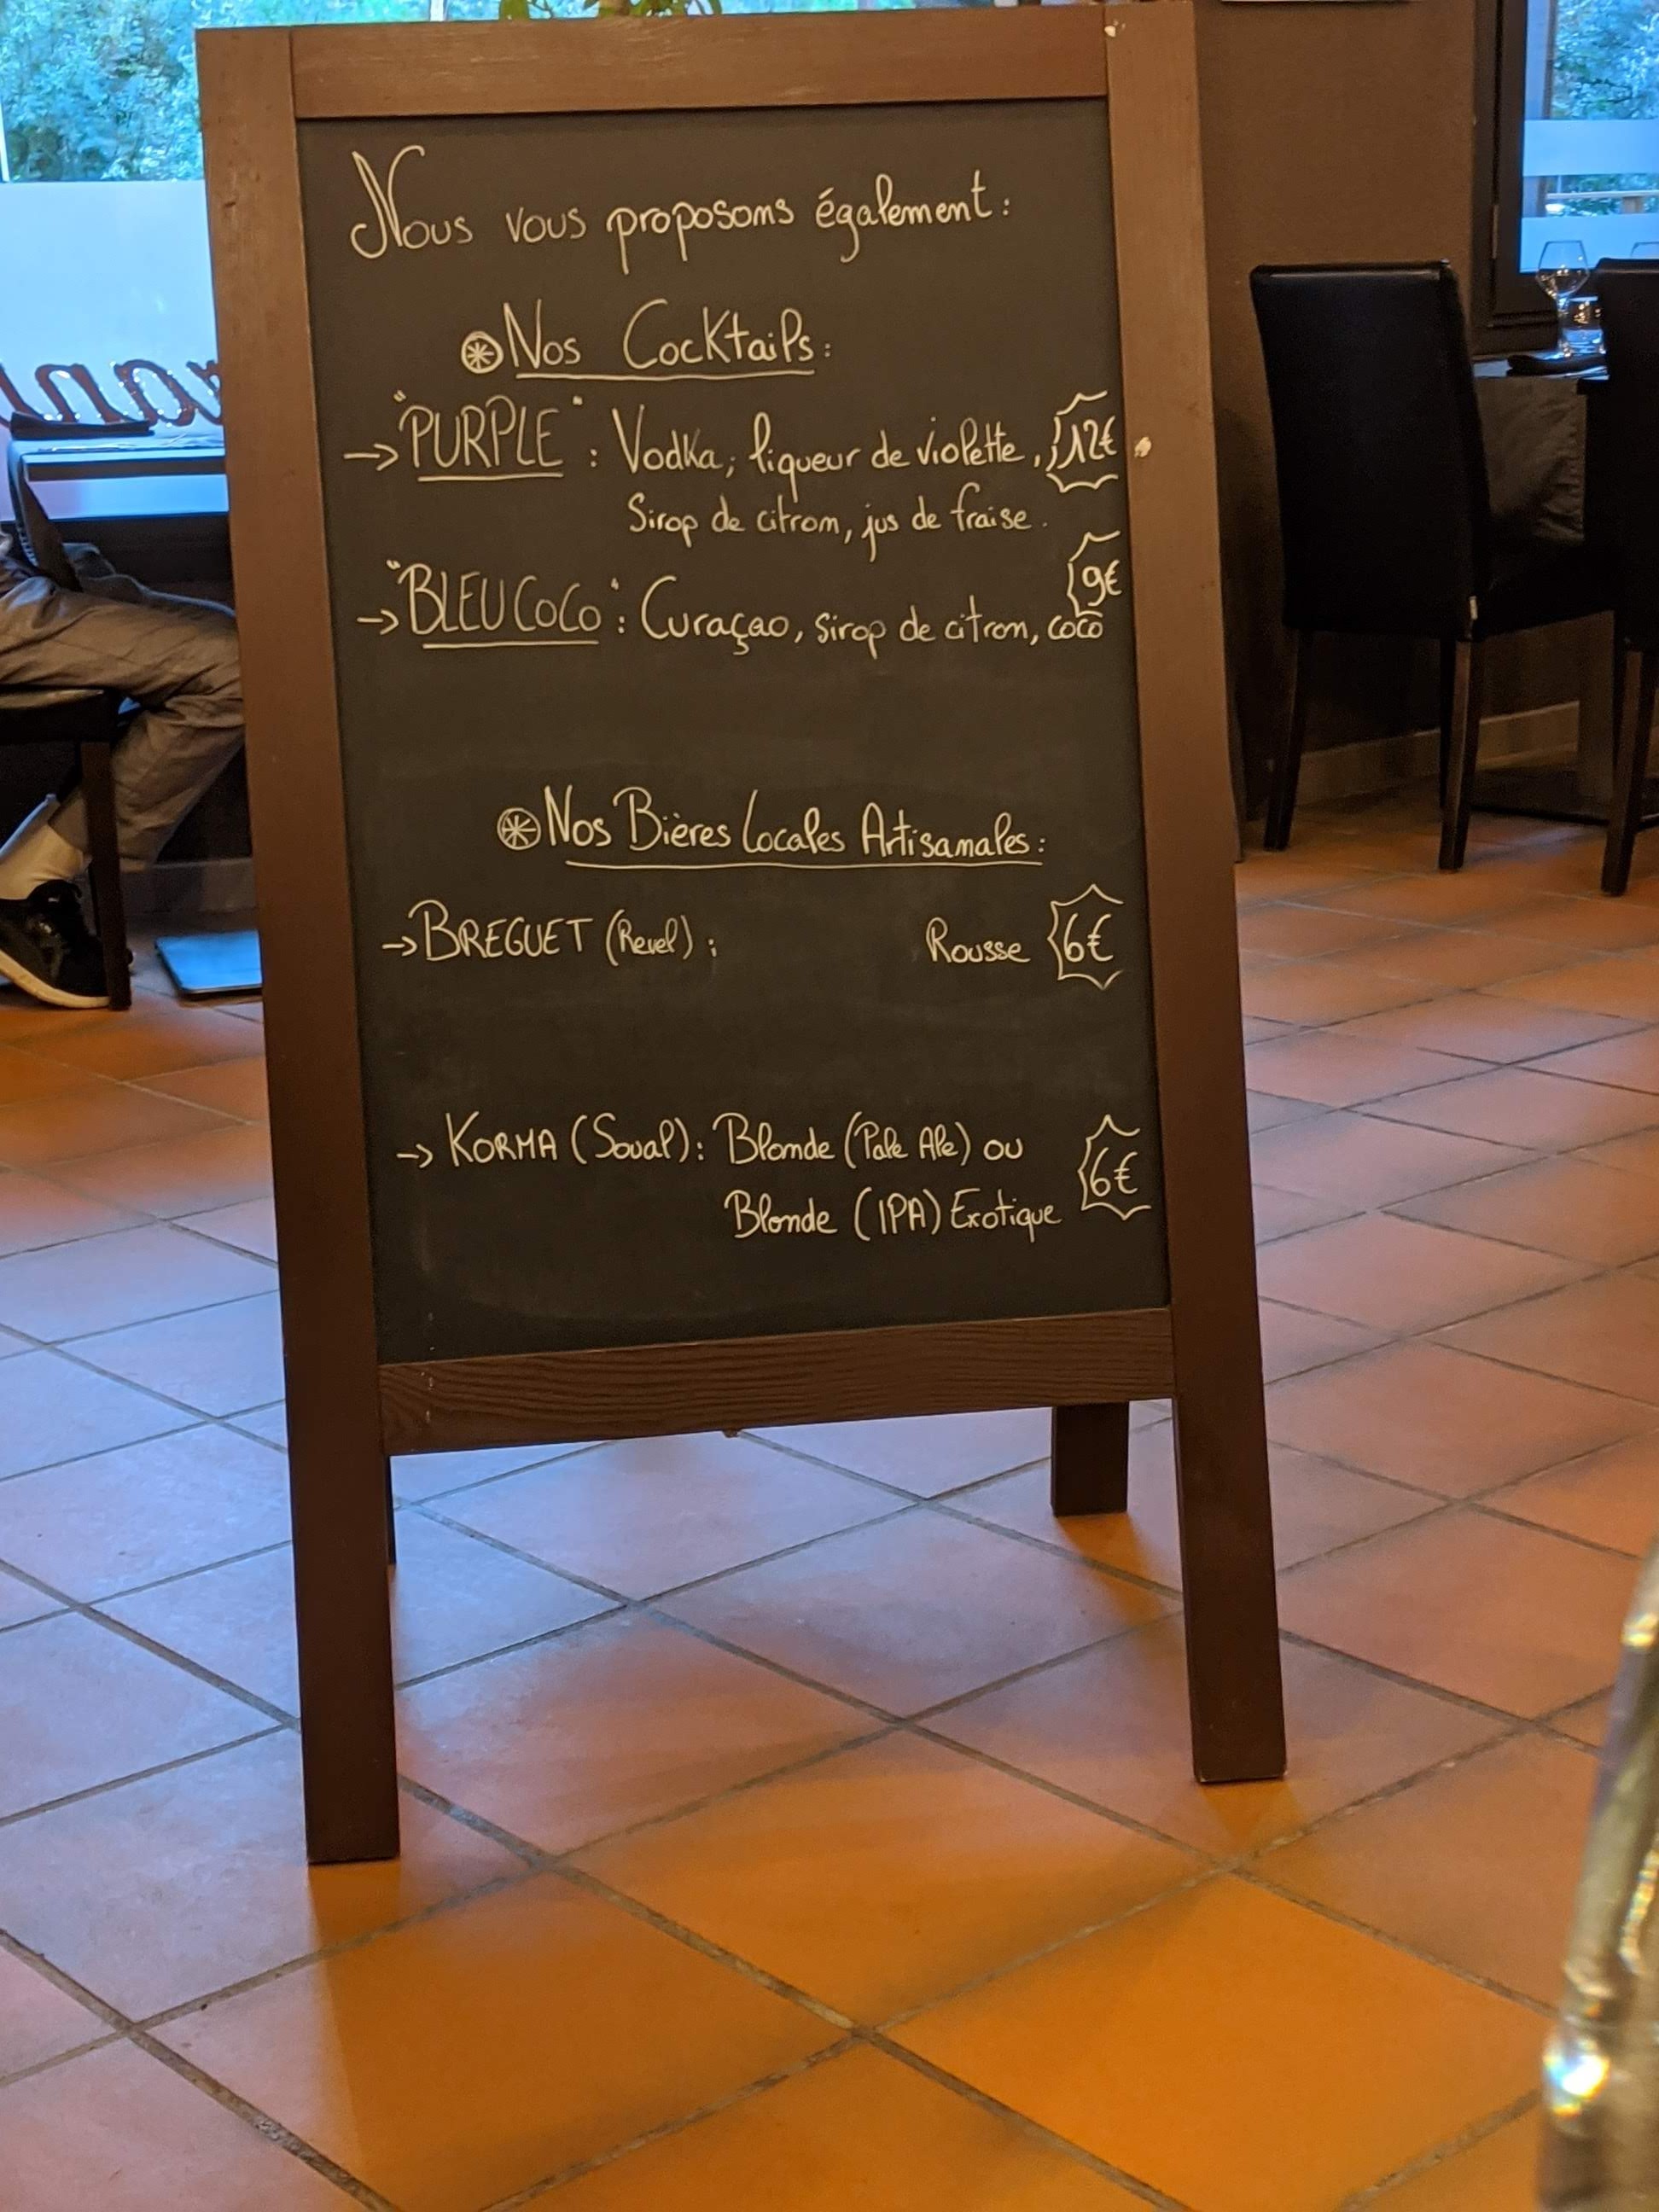 Nous vous proposons également :
Nos Cocktails :
-> "PURPLE" : Vodka, liqueur de violette, 12€
Sirop de citron, jus de fraise.
9€
-> "BLEU COCO" : Curaçao, sirop de citron, coco
Nos Bières Locales Artisanales :
-> BREGUET (Revel) : Rousse 6€
-> KORMA (Soual) : Blonde (Pale Ale) ou
6€
Blonde (IPA) Exotique